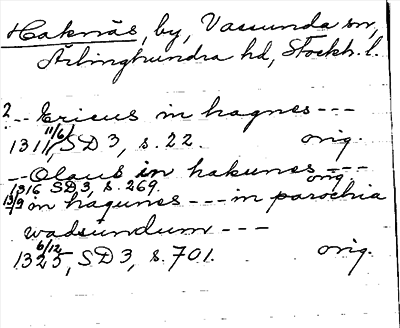 Haknäs, by, Vassunda sn,
Ärlinghundra hd, Stockh. l.
2 -- Ericus in hagnes ---
1311 11/6, SD 3, s. 22. orig.
-- Olaus in hakunes ---
1316 SD 3, s. 269. orig.
13/9 in hagunes --- in parochia
wadsundum ---
1325 6/12, SD 3, s. 701. orig.